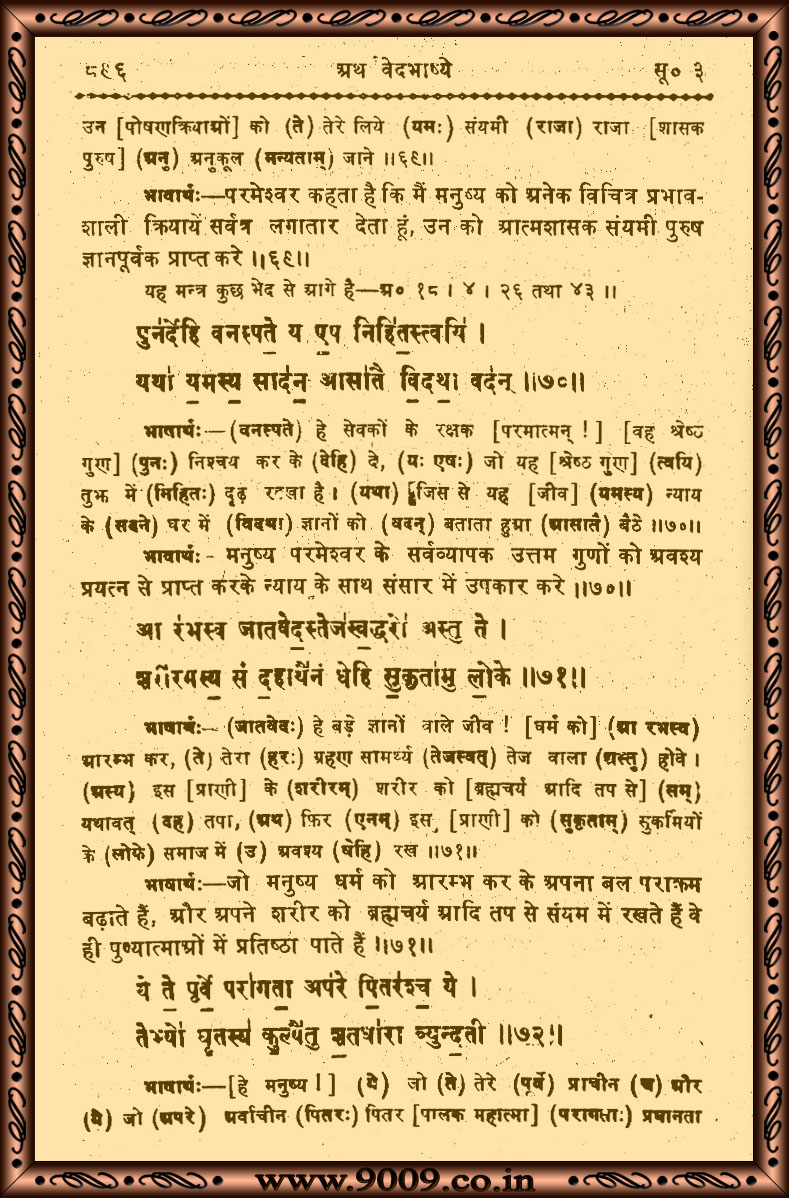 ८९६ अथ वेदभाष्ये सू० ३
उन [पोषणक्रियाओं] को (ते) तेरे लिये (यमः) संयमी (राजा) राजा [शासक
पुरुष] (अनु) अनुकूल (मन्यताम्) जाने ॥६९॥
भावार्थः—परमेश्वर कहता है कि मैं मनुष्य को अनेक विचित्र प्रभाव-
शाली क्रियायें सर्वत्र लगातार देता हूं, उन को आत्मशासक संयमी पुरुष
ज्ञानपूर्वक प्राप्त करे ॥६९॥
यह मन्त्र कुछ भेद से आगे है—अ० १८ । ४ । २६ तथा ४३ ॥
पुन॑र्देहि वनस्पते॒ य ए॒ष निहि॑त॒स्त्वयि॑ ।
यथा॑ य॒मस्य॒ साद॑न॒ आसा॑तै वि॒दथा॒ वद॑न् ॥७०॥
भाषार्थः—(वनस्पते) हे सेवकों के रक्षक [परमात्मन् !] [वह श्रेष्ठ
गुण] (पुनः) निश्चय कर के (देहि) दे, (यः एषः) जो यह [श्रेष्ठ गुण] (त्वयि)
तुझ में (निहितः) दृढ़ रक्खा है । (यथा) जिस से यह [जीव] (यमस्य) न्याय
के (सदने) घर में (विदथा) ज्ञानों को (वदन्) बताता हुआ (आसातै) बैठे ॥७०॥
भावार्थः - मनुष्य परमेश्वर के सर्वव्यापक उत्तम गुणों को अवश्य
प्रयत्न से प्राप्त करके न्याय के साथ संसार में उपकार करे ॥७०॥
आ र॑भस्व जातवेद॒स्तेज॑स्व॒द्धरो॑ अस्तु ते ।
शरी॑रमस्य॒ सं द॒हाथै॑नं धेहि सु॒कृता॑मु लो॒के ॥७१॥
भाषार्थः—(जातवेदः) हे बड़े ज्ञानों वाले जीव ! [धर्म को] (आ रभस्व)
आरम्भ कर, (ते) तेरा (हरः) ग्रहण सामर्थ्य (तेजस्वत्) तेज वाला (अस्तु) होवे ।
(अस्य) इस [प्राणी] के (शरीरम्) शरीर को [ब्रह्मचर्य आदि तप से] (सम्)
यथावत् (दह) तपा, (अथ) फिर (एनम्) इस [प्राणी] को (सुकृताम्) सुकर्मियों
के (लोके) समाज में (उ) अवश्य (धेहि) रख ॥७१॥
भावार्थः—जो मनुष्य धर्म को आरम्भ कर के अपना बल पराक्रम
बढ़ाते हैं, और अपने शरीर को ब्रह्मचर्य आदि तप से संयम में रखते हैं वे
ही पुण्यात्माओं में प्रतिष्ठा पाते हैं ॥७१॥
ये ते॒ पूर्वे॒ परा॑गता॒ अप॑रे पि॒तर॑श्च॒ ये ।
तेभ्यो॑ घृ॒तस्य॑ कु॒ल्यै॑तु श॒तधा॑रा व्युन्द॒ती ॥७२॥
भाषार्थः—[हे मनुष्य !] (ये) जो (ते) तेरे (पूर्वे) प्राचीन (च) और
(ये) जो (अपरे) अर्वाचीन (पितरः) पितर [पालक महात्मा] (परागताः) प्रधानता
www.9009.co.in